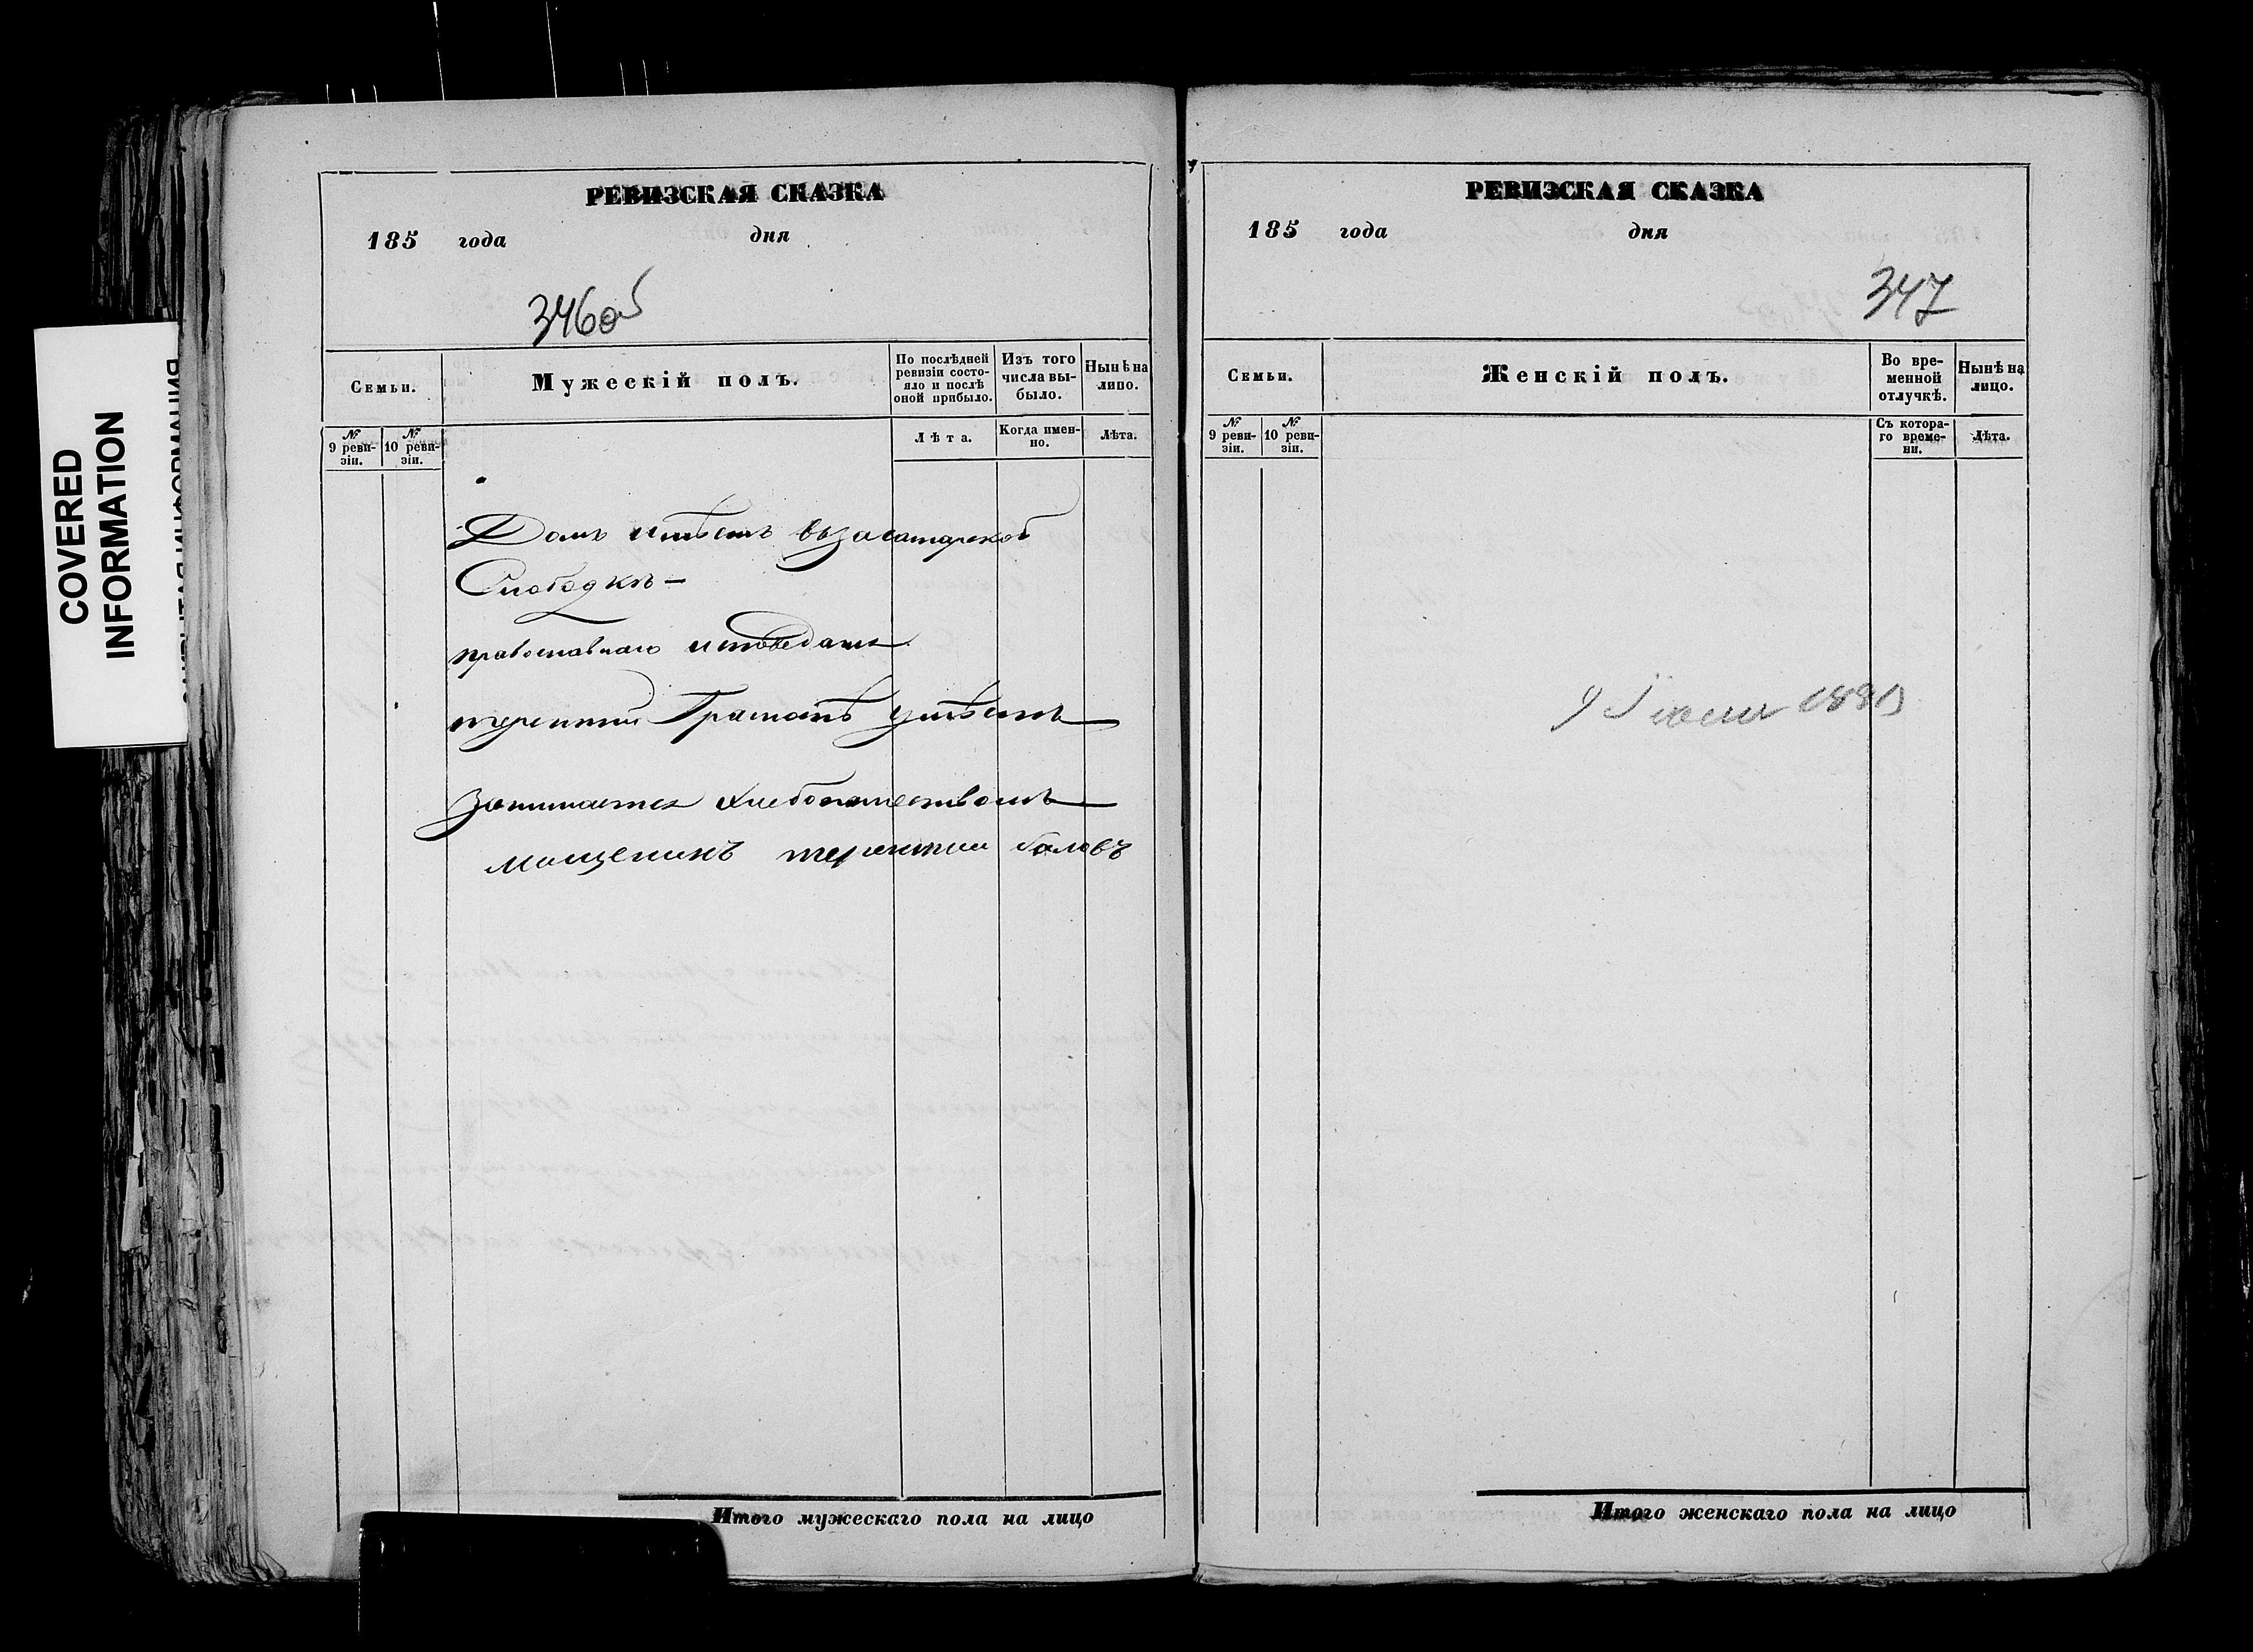 COVERED
INFORMATION
РЕВИЗСКАЯ СКАЗКА
185 года дня
346об
Семьи.
Мужескій полъ.
По послѣдней ревизіи состояло и послѣ оной прибыло.
Изъ того числа выбыло.
Нынѣ на лицо.
№ 9 ревизіи.
№ 10 ревизіи.
Лѣта.
Когда именно.
Лѣта.
Домъ имѣетъ въ засатарской
Слободкѣ —
православнаго исповедания
терентий Грамотѣ умѣетъ
занимается хлебопашествомъ
мещенинъ терентии баловъ
Итого мужескаго пола на лицо
РЕВИЗСКАЯ СКАЗКА
185 года дня
347
Семьи.
Женскій полъ.
Во временной отлучкѣ.
Нынѣ на лицо.
№ 9 ревизіи.
№ 10 ревизіи.
Съ котораго времени.
Лѣта.
9
Итого женскаго пола на лицо